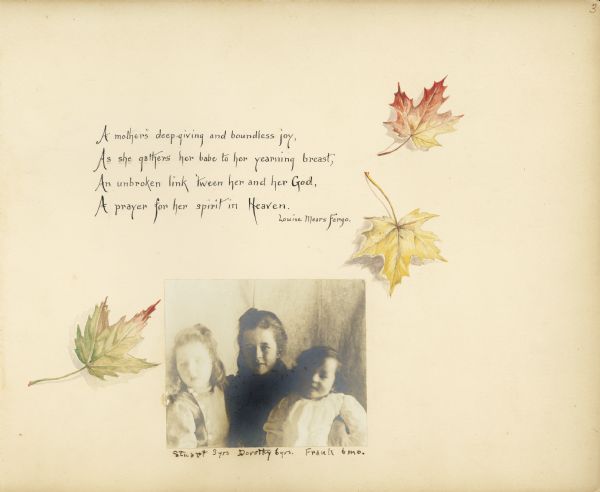 3
A mother's deep-giving and boundless joy,
As she gathers her babe to her yearning breast;
An unbroken link 'tween her and her God,
A prayer for her spirit in Heaven.
Louise Mears Fargo.
Stuart 3yrs Dorothy 6yrs. Frank 6mo.